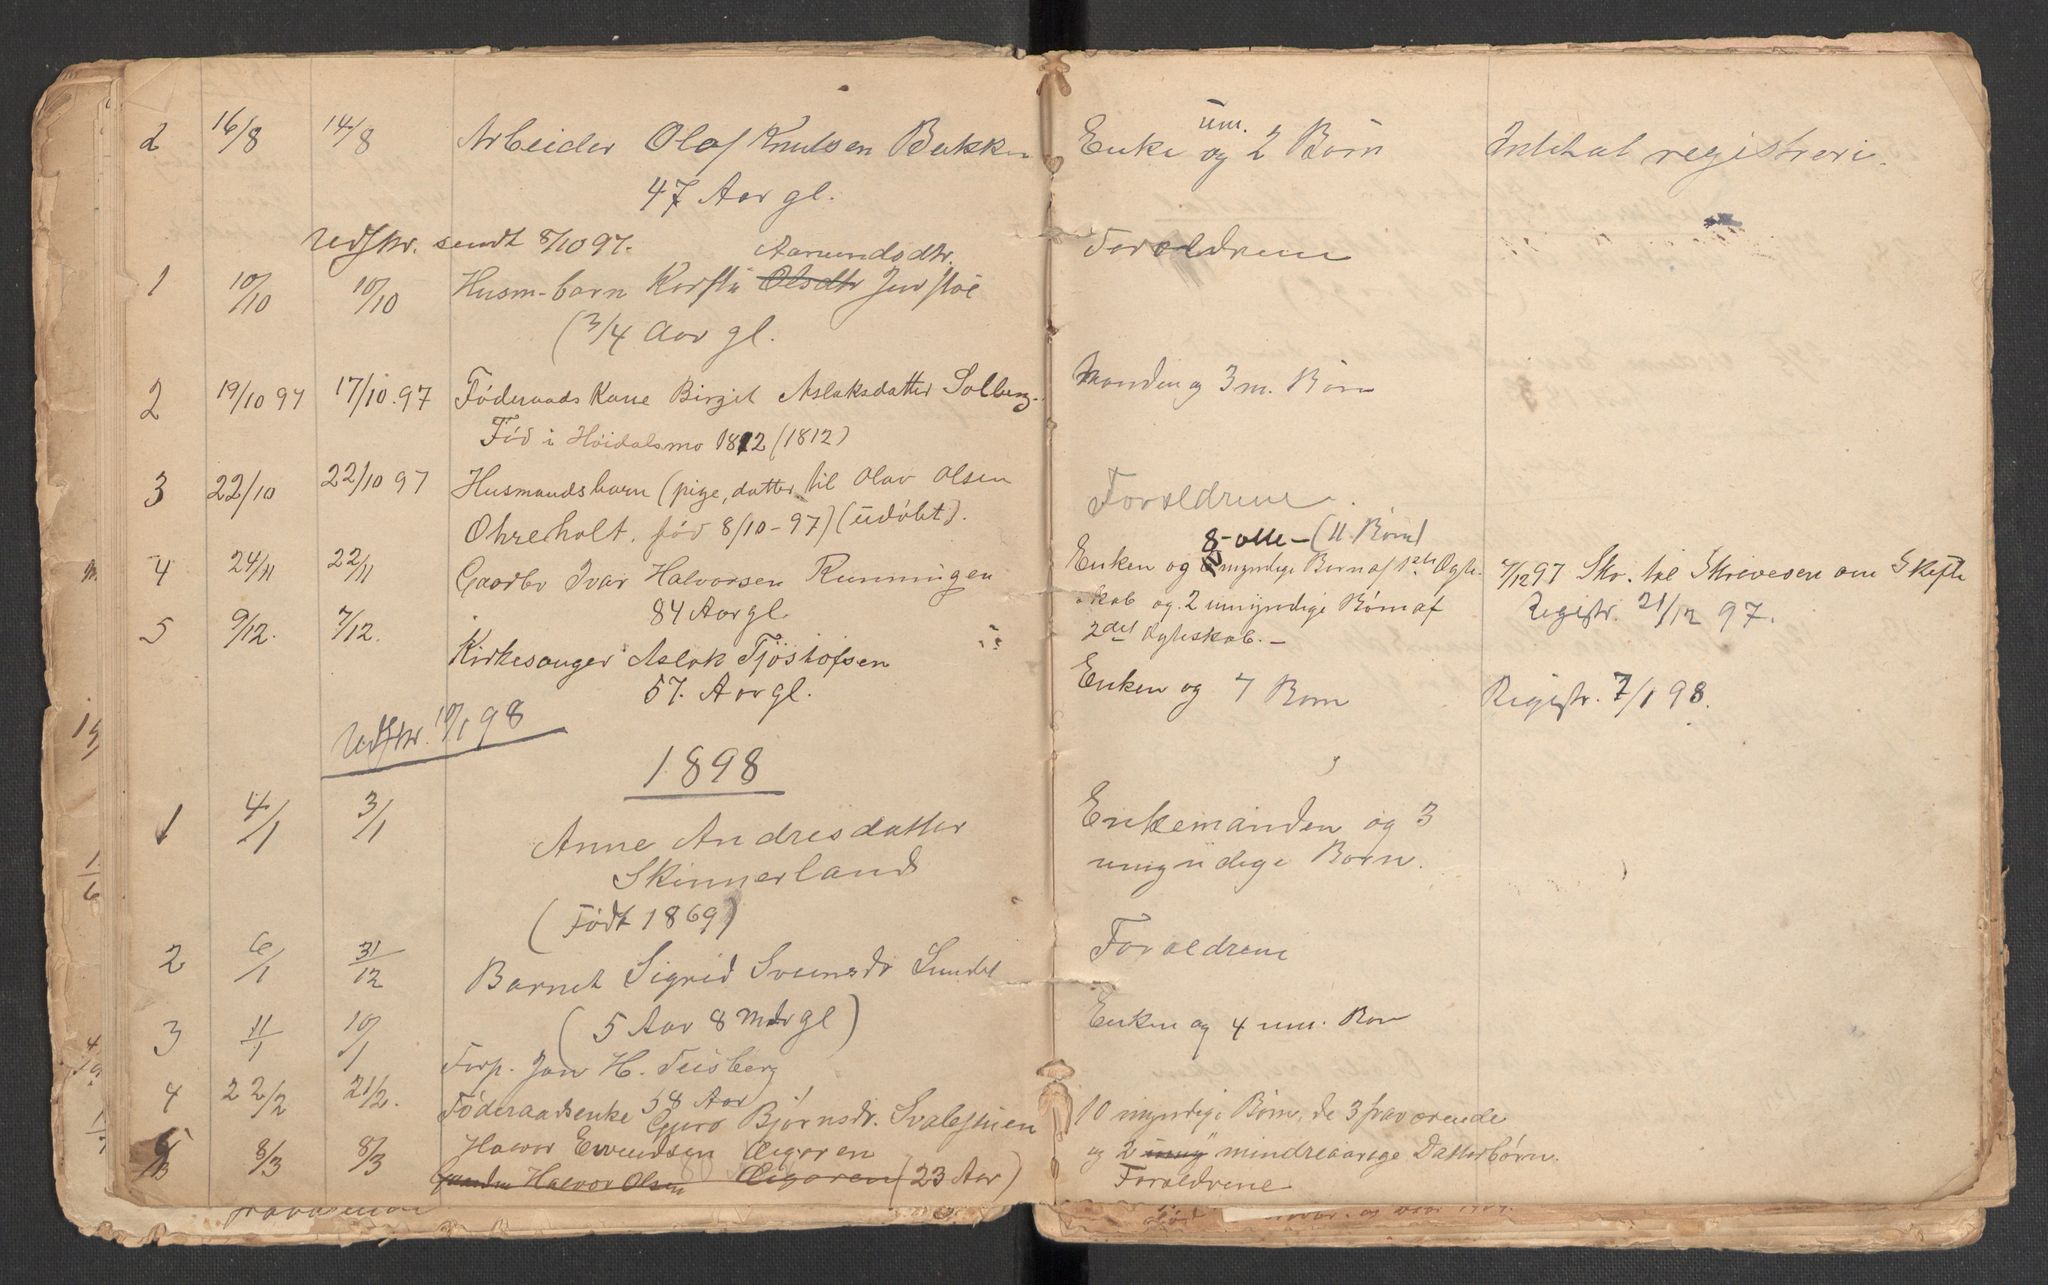 2 16/8 14/8 Arbeider Olaf Knutsen Bakken
47 Aar gl.
Udskr. sendt 8/10 97.
Aamundsdtr.
1 10/10 10/10 Husm-barn Olsdtr
(3/4 Aar gl.
2 19/10 97 17/10.97 Föderaads Kone Birgit Aslaksdatter Solberg.
Föd i Höidalsmo 1812 (1812)
3 22/10 22/10 97 Husmandsbarn (pige, datter til Olav Olsen
Ohreholt, född 8/10-97) (udöbt).
4 24/11 22/11 Gaardbr Ivar Halvorsen Runningen
84 Aar gl
5 9/12. 7/12. Kirkesanger Aslak Tjöstofsen
57. Aar gl.
Udskr. 10/1 98
1898
1 4/1 3/1 Anne Andresdatter
Skinnerland
(Födt 1869)
2 6/1 31/12 Barnet Sigrid Sveinsdr Sundet
(5 Aar 8 Mdr gl)
3 11/1 10/1 Forp. Jon H. Teisberg
58 Aar
4 22/2 21/2. Föderaadsenke Guro Björnsdr.
5 8/3 8/3 Halvor Evendsen Œigaren
Halvor Olsen Œigaren (23 Aar)
um.
Enke og 2 Börn Intet at registrere.
Forældrene
Manden og 3 m. Börn
Forældrene.
8 - alle - (11 Börn)
Enken og myndige Börn af 1ste Ægte- 7/12 97 Skr. til Skriveren om Skifte
skab og 2 umyndige Börn af Registr. 21/12 97.
2det Ægteskab. -
Enken og 7 Börn Registr. 7/1 98.
Enkemanden og 3
umyndige Börn.
Forældrene
Enken og 4 um. Börn
10 myndige Börn, de 3 fraværende
og 2 umy" mindreaarige Datterbörn.
Forældrene